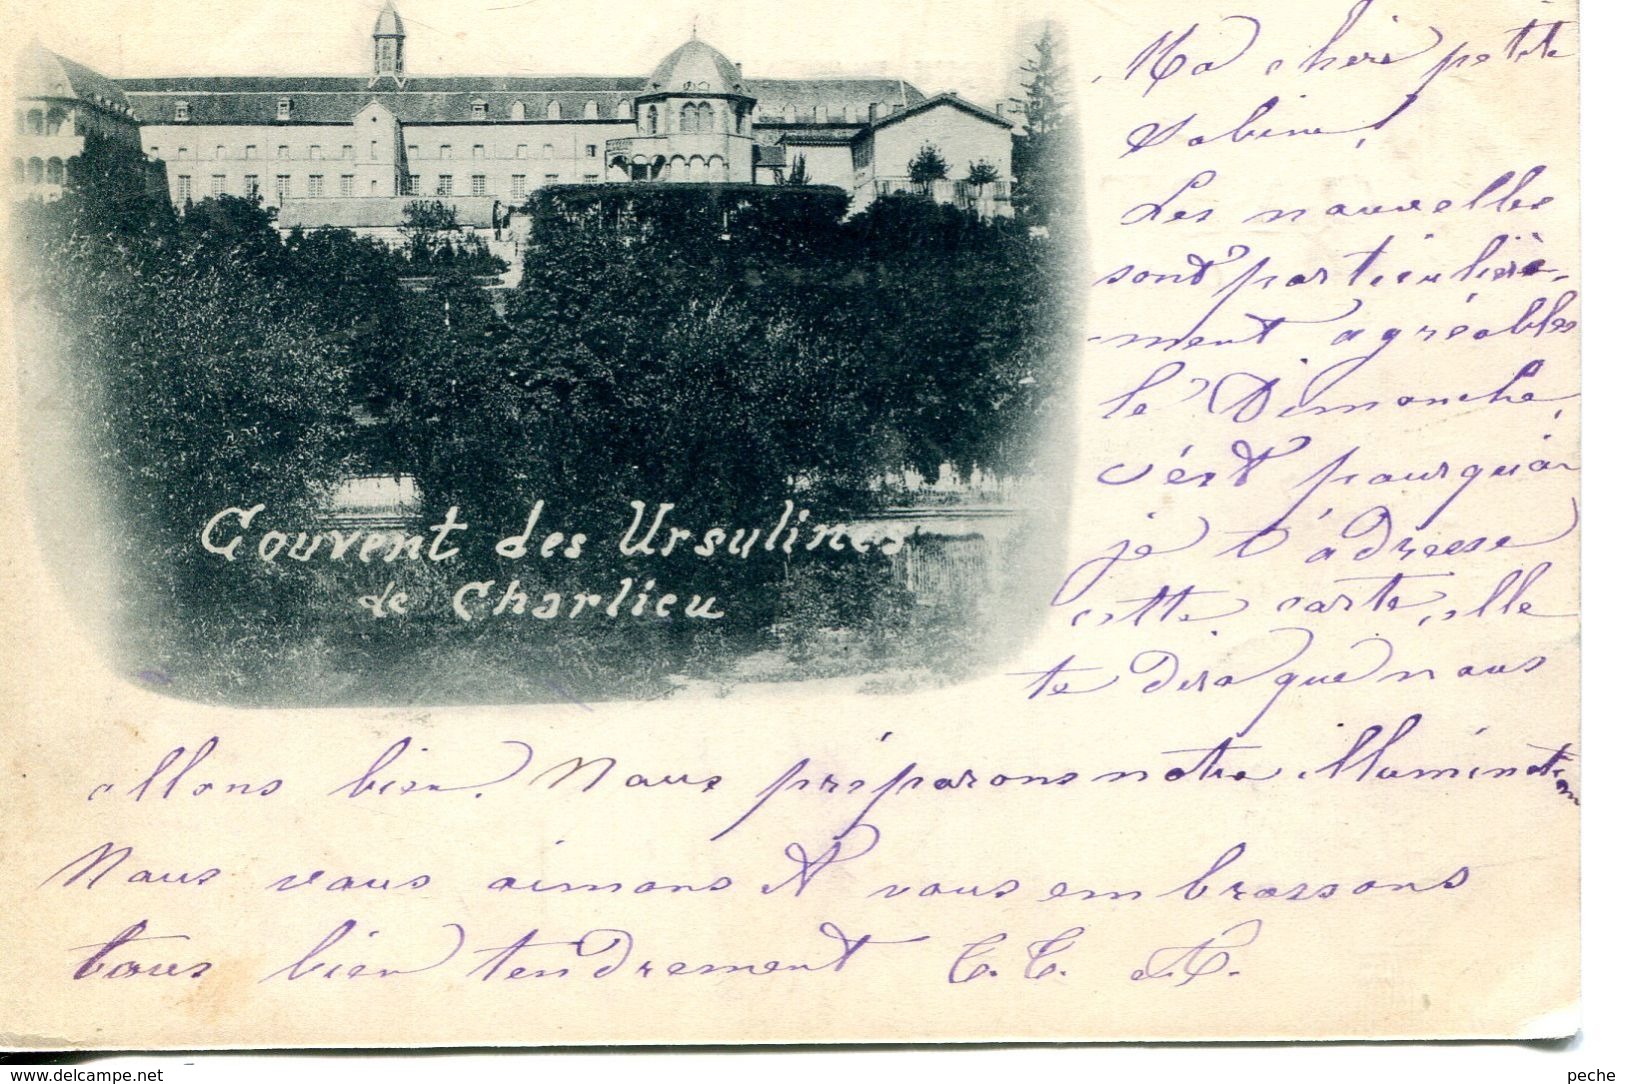 Couvent des Ursulines
de Charlieu
Ma chère petite
Sabine,
Les nouvelles
sont particulière-
-ment agréables
le Dimanche,
c'est pourquoi
je t'adresse
cette carte, elle
te dira que nous
allons bien. Nous préparons notre illumination
Nous vous aimons et vous embrassons
tous bien tendrement C. C.
www.delcampe.net
peche